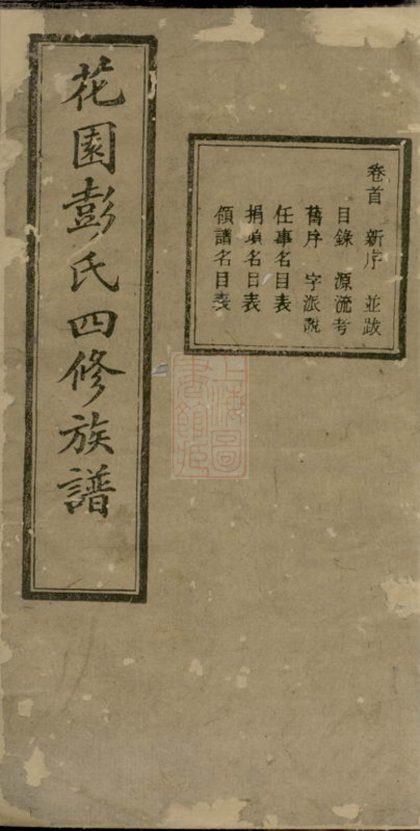 花園彭氏四修族譜
卷首 新序 並跋
目錄 源流考
舊序 字派說
任事名目表
捐項名目表
領譜名目表
上海圖書館藏